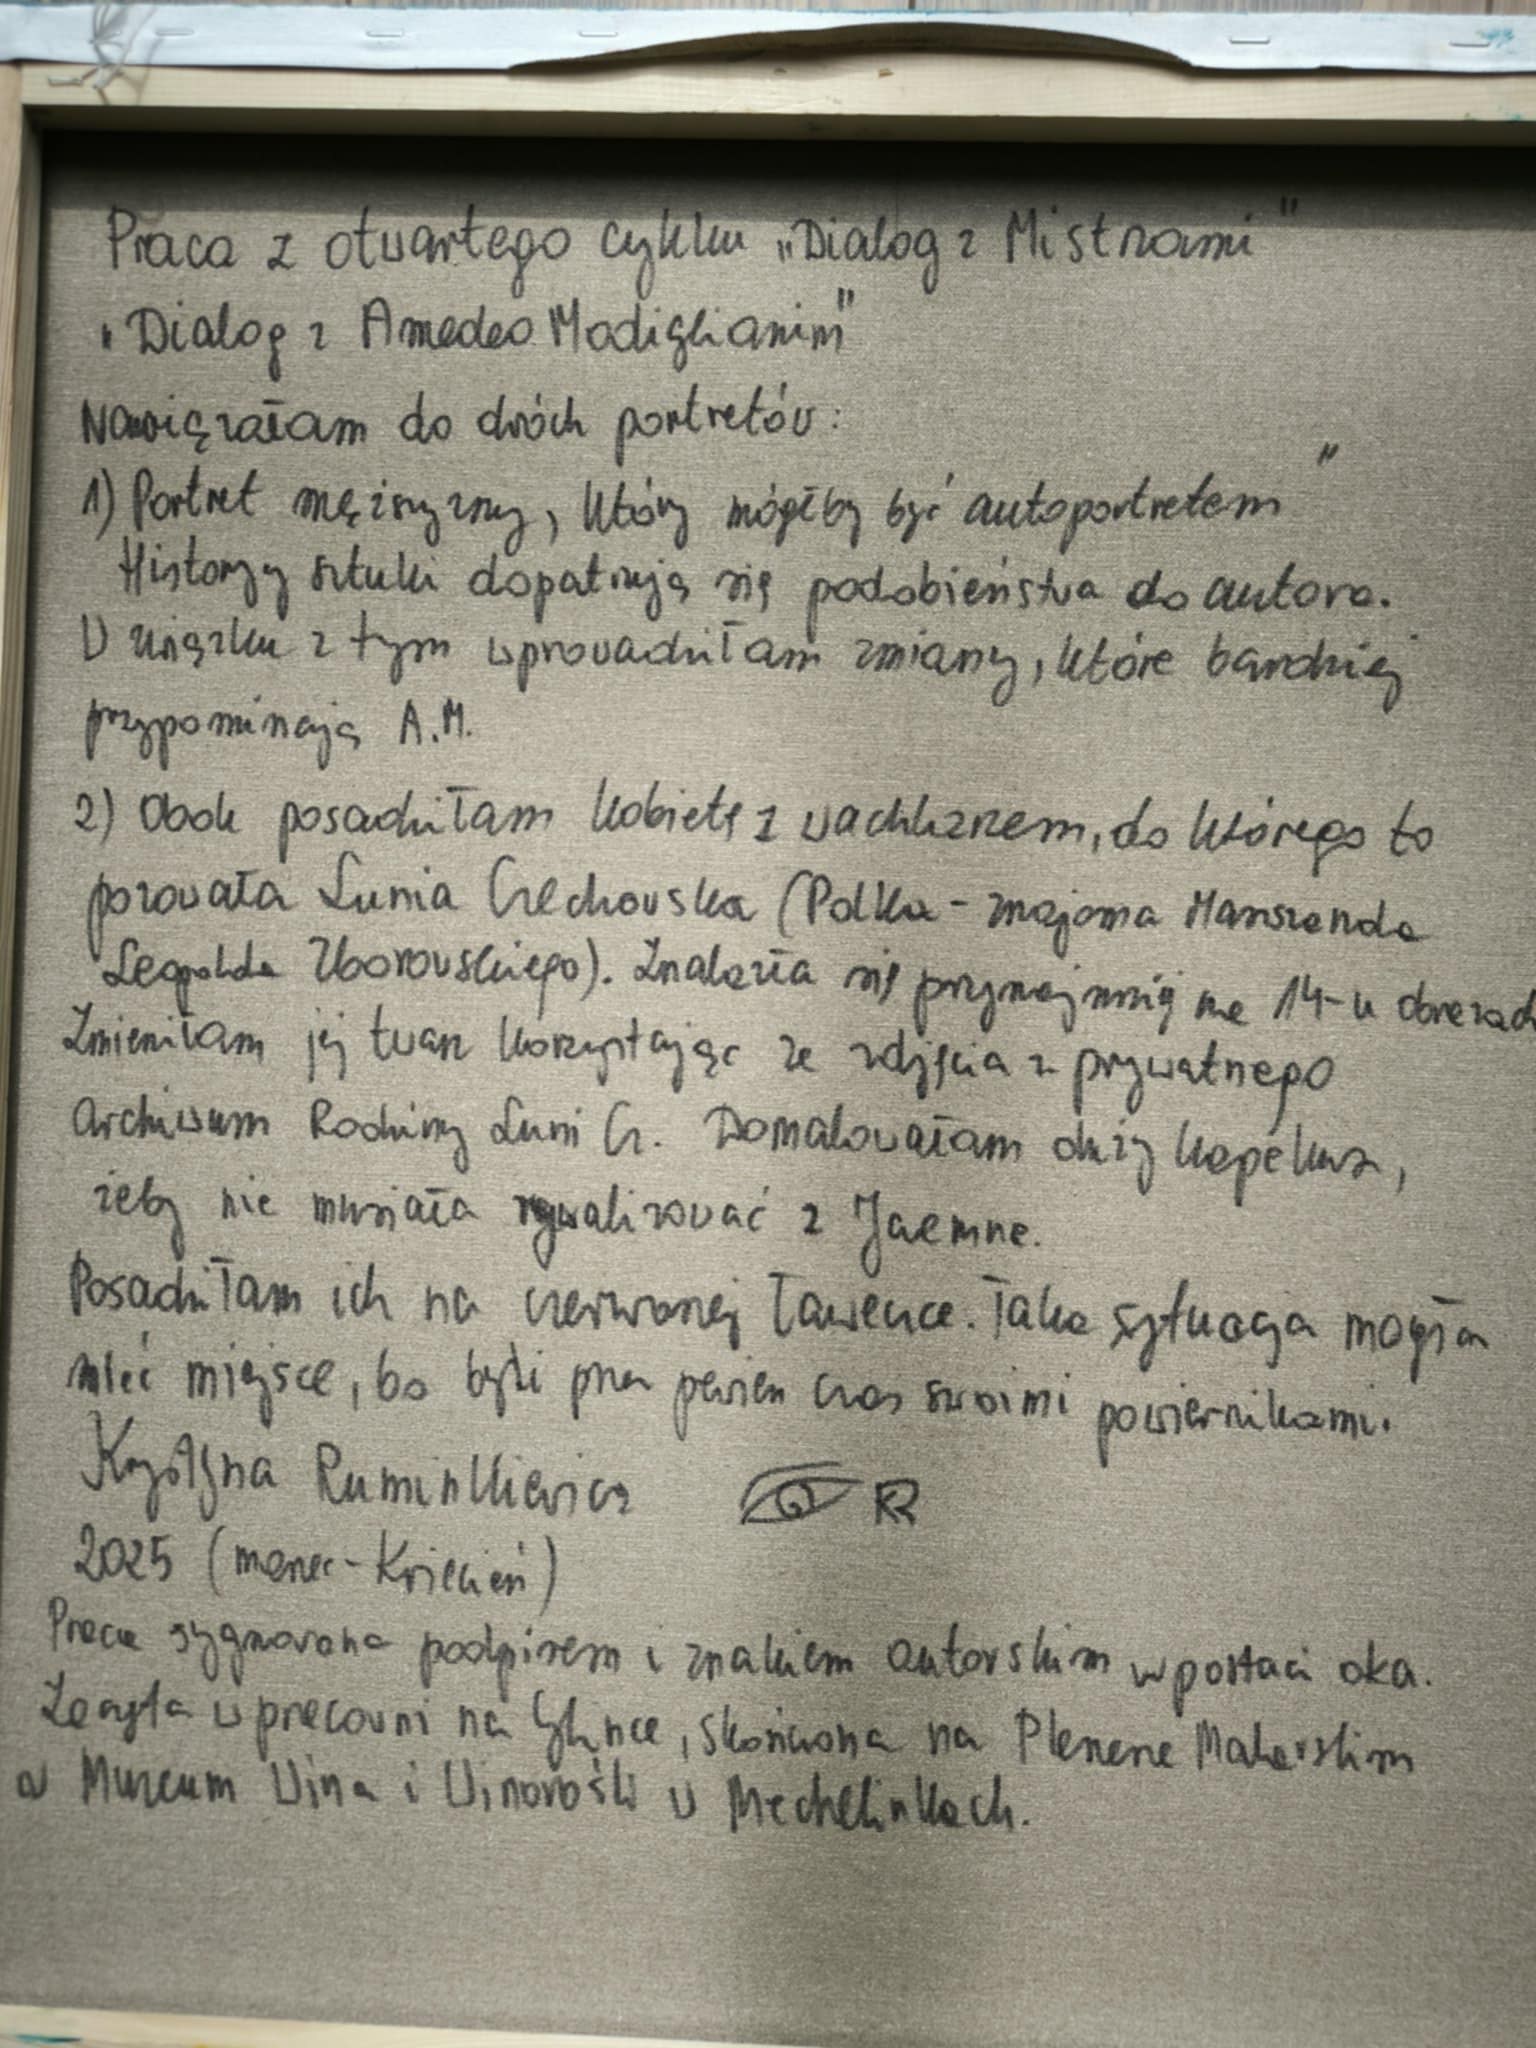 Praca z otwartego cyklu „Dialog z Mistrzami"
„Dialog z Amedeo Modiglianim"
Nawiązałam do dwóch portretów:
1) Portret mężczyzny, który mógłby być autoportretem"
Historycy sztuki dopatrują się podobieństwa do autora.
W związku z tym wprowadziłam zmiany, które bardziej
przypominają A.M.
2) Obok posadziłam kobietę z wachlarzem, do którego to
pozowała Lunia Czechowska (Polka - znajoma Marszanda
Leopolda Zborowskiego). Znalazła się przynajmniej na 14-u obrazach
Zmieniłam jej twarz korzystając ze zdjęcia z prywatnego
archiwum Rodziny Luni Cz. Domalowałam duży kapelusz,
żeby nie musiała rywalizować z Jaemne.
Posadziłam ich na czerwonej ławeczce. Taka sytuacja mogła
mieć miejsce, bo byli przez pewien czas swoimi powiernikami.
Krystyna Ruminkiewicz KR
2025 (marzec - Kwiecień)
Praca sygnowana podpisem i znakiem autorskim w postaci oka.
Zaczęta w pracowni na , skończona na Plenerze Malarskim
w Muzeum Wina i Winorośli w Mechelinkach.